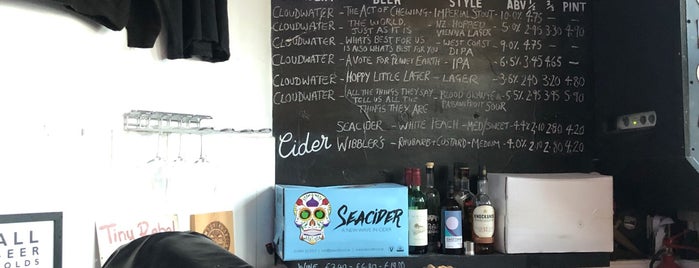 BEER STYLE ABV ⅓ ½ PINT
CLOUDWATER - THE ACT OF CHEWING - IMPERIAL STOUT - 10.0% 4.75 — —
CLOUDWATER - THE WORLD, JUST AS IT IS - NZ HOPPED VIENNA LAGER 5% 2.45 3.30 4.90
CLOUDWATER - WHATS BEST FOR US IS ALSO WHATS BEST FOR YOU - WEST COAST DIPA
CLOUDWATER - A VOTE FOR PLANET EARTH - IPA - 6.5% 3.45 4.65 —
CLOUDWATER - HOPPY LITTLE LATER - LAGER - 3.6% 2.40 3.20 4.80
CLOUDWATER - ALL THE THINGS THEY SAY TELL US ALL THE THINGS THEY ARE - BLOOD ORANGE & PASSIONFRUIT SOUR 5.5% 2.95 3.95 5.90
Cider
SEACIDER - WHITE PEACH - MED/SWEET - 4.4% 2.10 2.80 4.20
WIBBLER'S - RHUBARB + CUSTARD - MEDIUM - 4.0% 2.10 2.80 4.20
SEACIDER
A NEW WAVE IN CIDER
Tiny Rebel
ALL
BEER
WINE